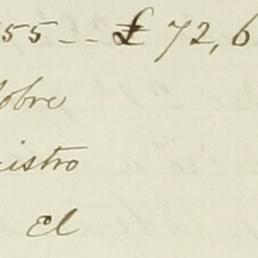 55 -- £ 72,6
obre
istro
el